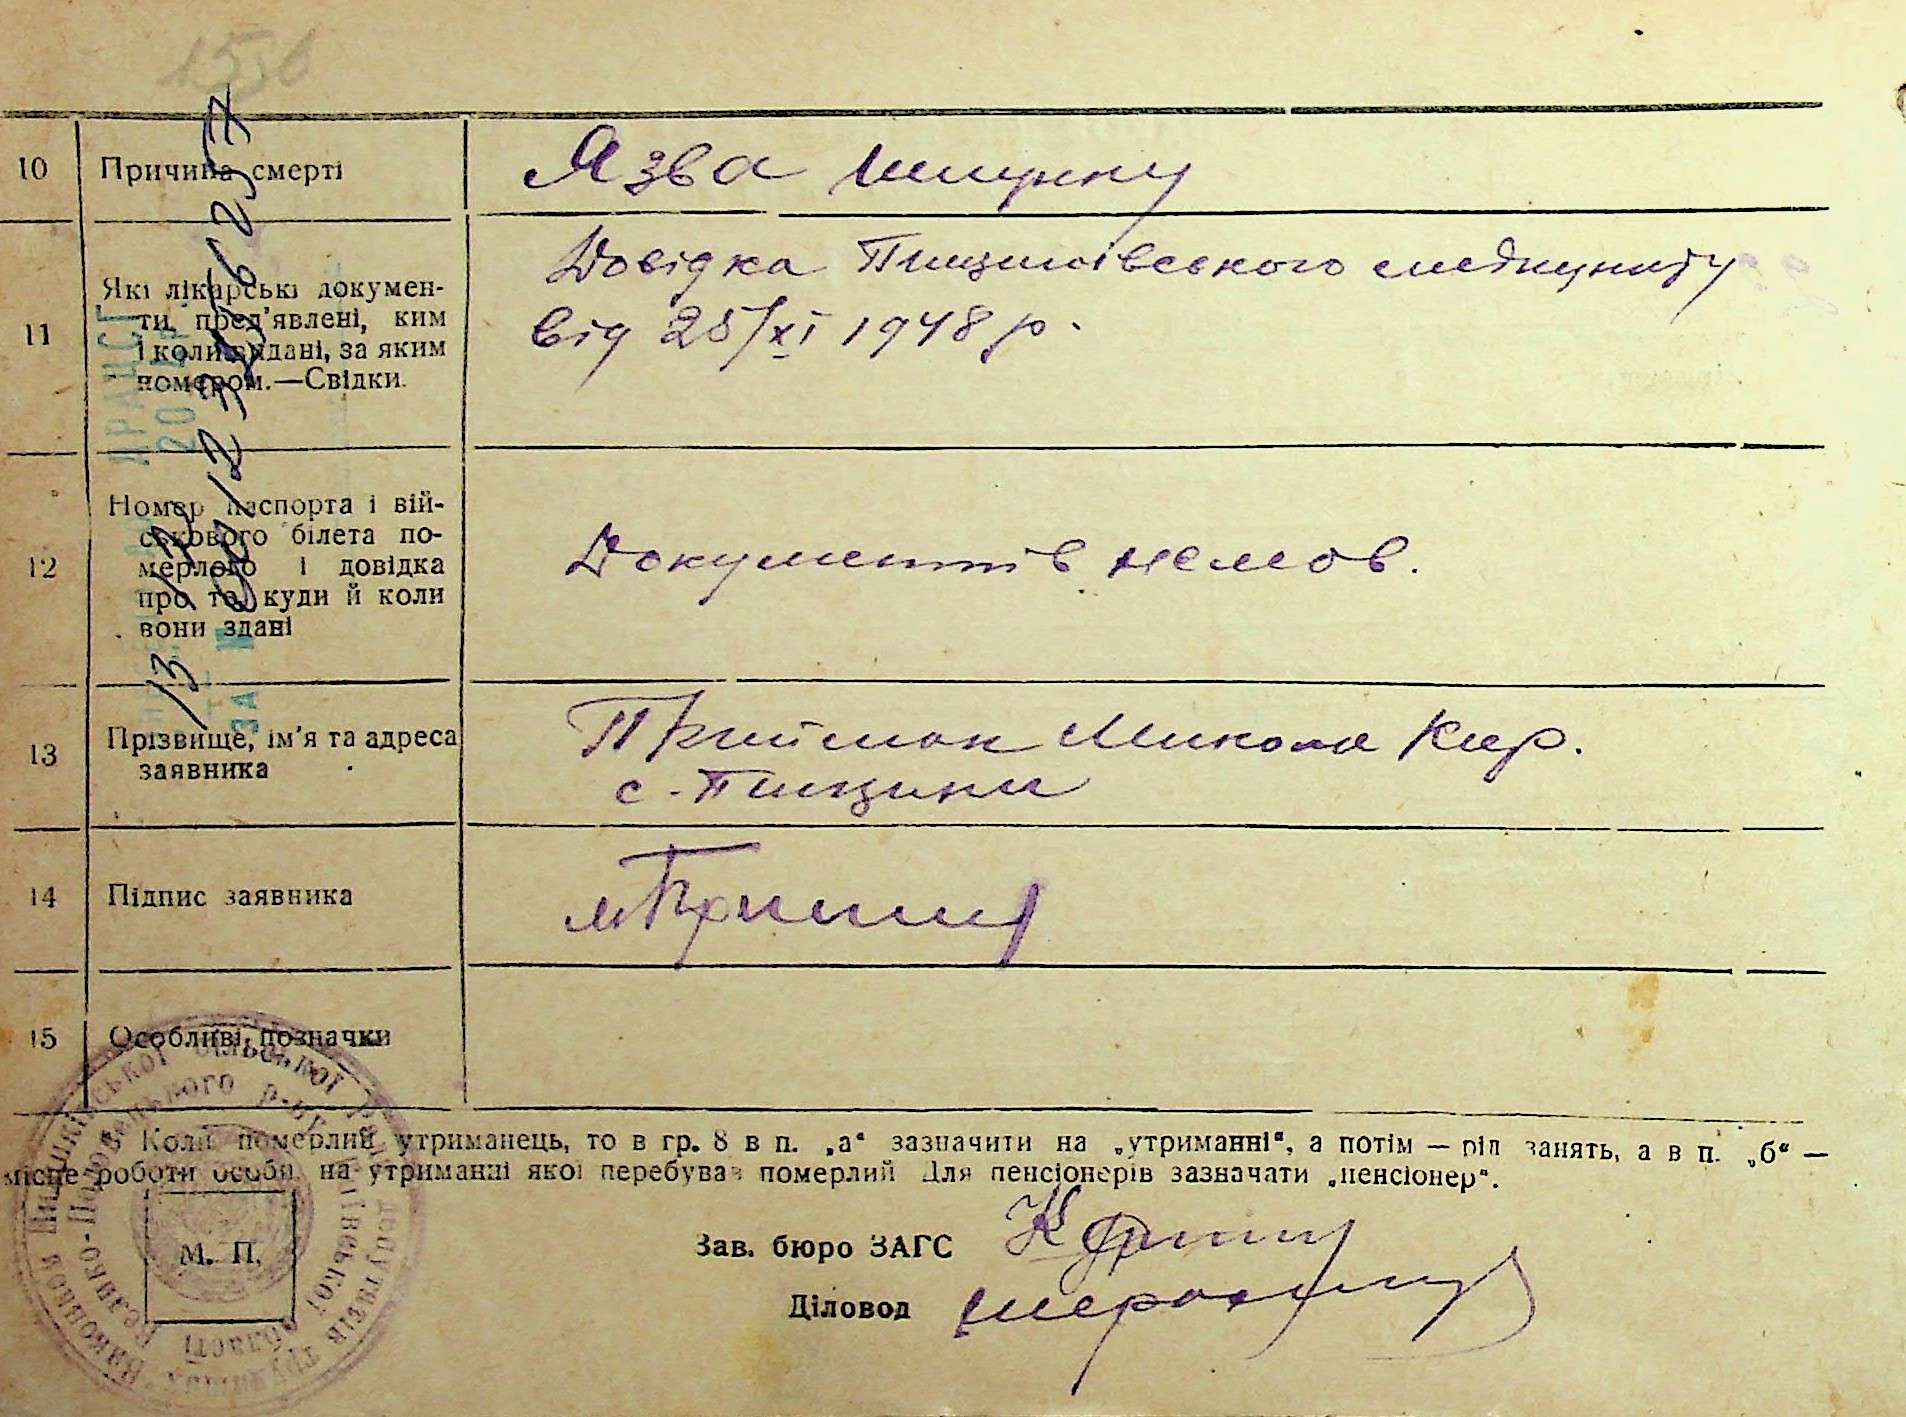 10 Причина смерті Язва шлунку
11 Які лікарські докумен-
ти пред'явлені, ким
і коли видані, за яким
номером.—Свідки.
Довідка Пищиківського медпункту
від 25/XI 1948 р.
12 Номер паспорта і вій-
ськового білета по-
мерлого і довідка
про те, куди й коли
вони здані
Документів немає.
13 Прізвище, ім'я та адреса
заявника
Приймак Микола Кир.
с. Пищики
14 Підпис заявника
15 Особливі позначки
Коли померлий утриманець, то в гр. 8 в п. „а“ зазначити на „утриманні“, а потім — рід занять, а в п. „б“ —
місце роботи особи, на утриманні якої перебував померлий Для пенсіонерів зазначати „пенсіонер“.
Зав. бюро ЗАГС
Діловод
М. П.
ЗА №